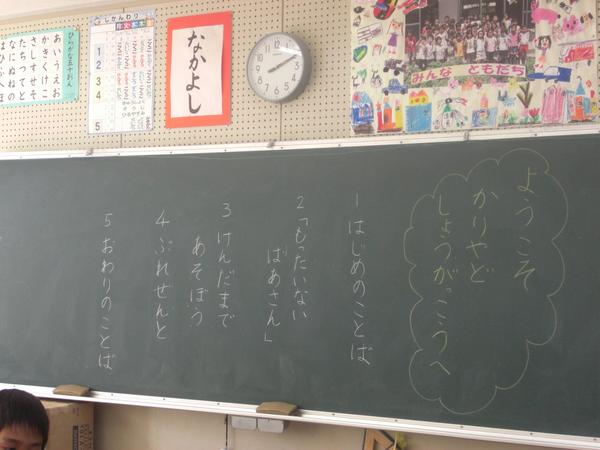 ようこそ
かりやど
しょうがっこうへ
1 はじめのことば
2 「もったいない
ばあさん」
3 けんだまで
あそぼう
4 ぷれぜんと
5 おわりのことば
なかよし
みんな ともだち
じかんわり
1
2
3
4
5
ひらがな五十おん
あいうえお
かきくけこ
さしすせそ
たちつてと
なにぬねの